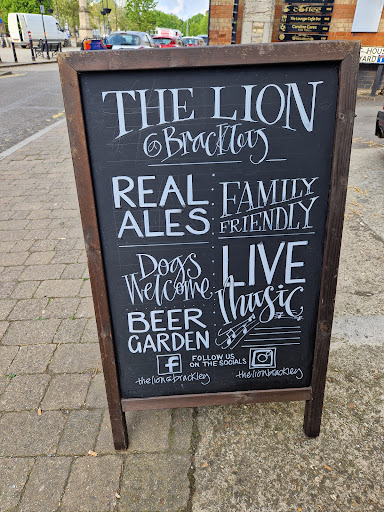 THE LION
@ Brackley
REAL
ALES
FAMILY
FRIENDLY
Dogs
Welcome
LIVE
Music
BEER
GARDEN
FOLLOW US
ON THE SOCIALS
f
thelion@brackley
thelionbrackley
Coffee
YARD